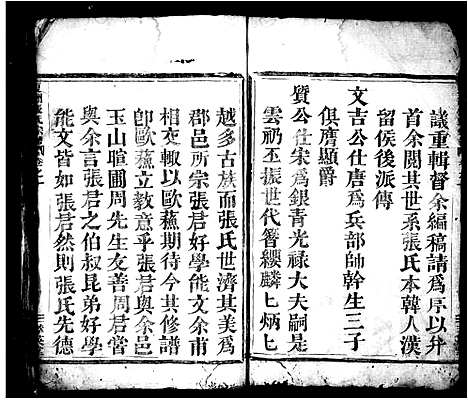 議重輯督余編稿請爲序以弁
首余閱其世系張氏本韓人漢
留侯後派傳
文吉公仕唐爲兵部帥幹生三子
俱膺顯爵
質公仕宋爲銀青光祿大夫嗣是
雲礽丕振世代簪纓麟匕炳匕
越多古族而張氏世濟其美爲
郡邑所宗張君好學能文余甫
相交輙以歐蘇期待今其修譜
卽歐蘇立教意乎張君與余邑
玉山暄圃周先生友善周君嘗
與余言張君之伯叔昆弟好學
能文皆如張君然則張氏先德